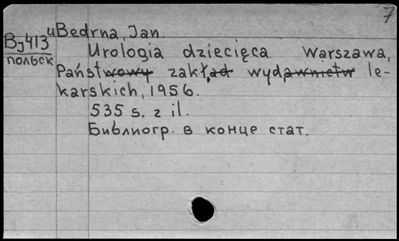 7
Bj413 u Bedrna, Jan.
польск
Urologia dziecięca. Warszawa,
Państwowy zakład wydawnictw le-
karskich, 1956.
535 s. z il.
Библиогр. в конце стат.